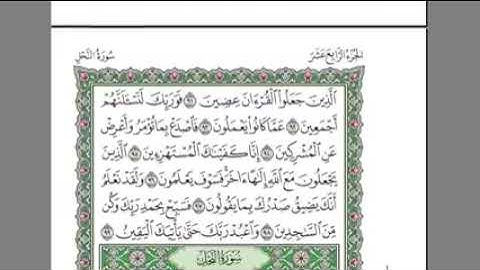 الجزء الرابع عشر
سورة النحل
الَّذِينَ جَعَلُوا الْقُرْءَانَ عِضِينَ ٩١ فَوَرَبِّكَ لَنَسْـَٔلَنَّهُمْ
أَجْمَعِينَ ٩٢ عَمَّا كَانُوا يَعْمَلُونَ ٩٣ فَاصْدَعْ بِمَا تُؤْمَرُ وَأَعْرِضْ
عَنِ الْمُشْرِكِينَ ٩٤ إِنَّا كَفَيْنَاكَ الْمُسْتَهْزِءِينَ ٩٥ الَّذِينَ
يَجْعَلُونَ مَعَ اللَّهِ إِلَٰهًا ءَاخَرَ فَسَوْفَ يَعْلَمُونَ ٩٦ وَلَقَدْ نَعْلَمُ
أَنَّكَ يَضِيقُ صَدْرُكَ بِمَا يَقُولُونَ ٩٧ فَسَبِّحْ بِحَمْدِ رَبِّكَ وَكُن
مِّنَ السَّاجِدِينَ ٩٨ وَاعْبُدْ رَبَّكَ حَتَّىٰ يَأْتِيَكَ الْيَقِينُ ٩٩
سُورَةُ النَّحْلِ